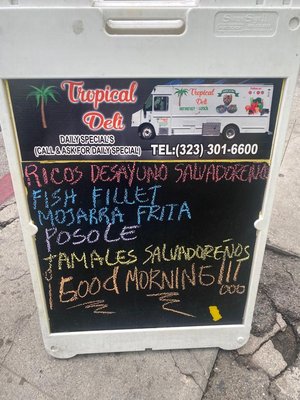 Tropical
Deli
DAILY SPECIAL'S
(CALL & ASK FOR DAILY SPECIAL)
Tropical
Deli
TEL:(323) 301-6600
RICOS DESAYUNO SALVADOREÑO
FISH FILLET
MOJARRA FRITA
POSOLE
TAMALES SALVADOREÑOS
GOOD MORNING!!!